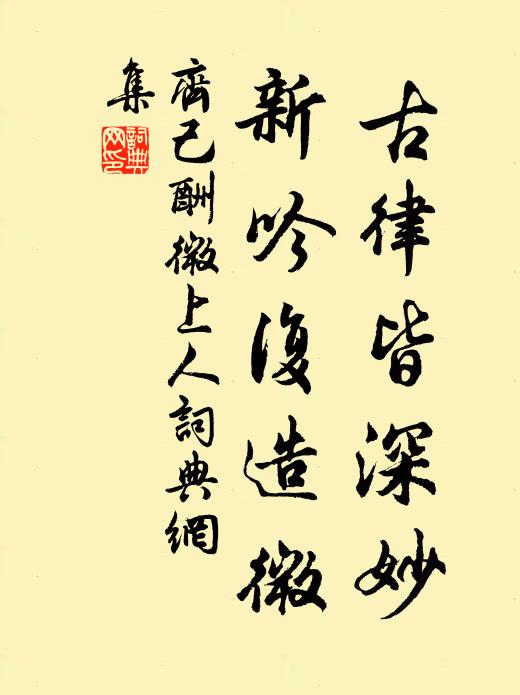 古律皆深妙
新吟復造微
齊己酬微上人詞典網
集
詞典
网印